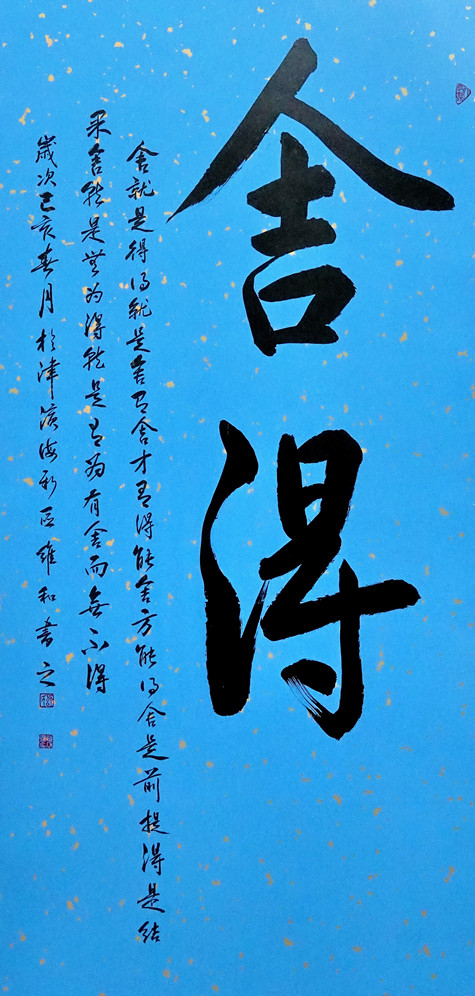 舍得
舍就是得得就是舍有舍才有得能舍方能得舍是前提得是结
果舍就是無为得就是有为有舍而無不得
歲次己亥春月於津滨海新区維和書之